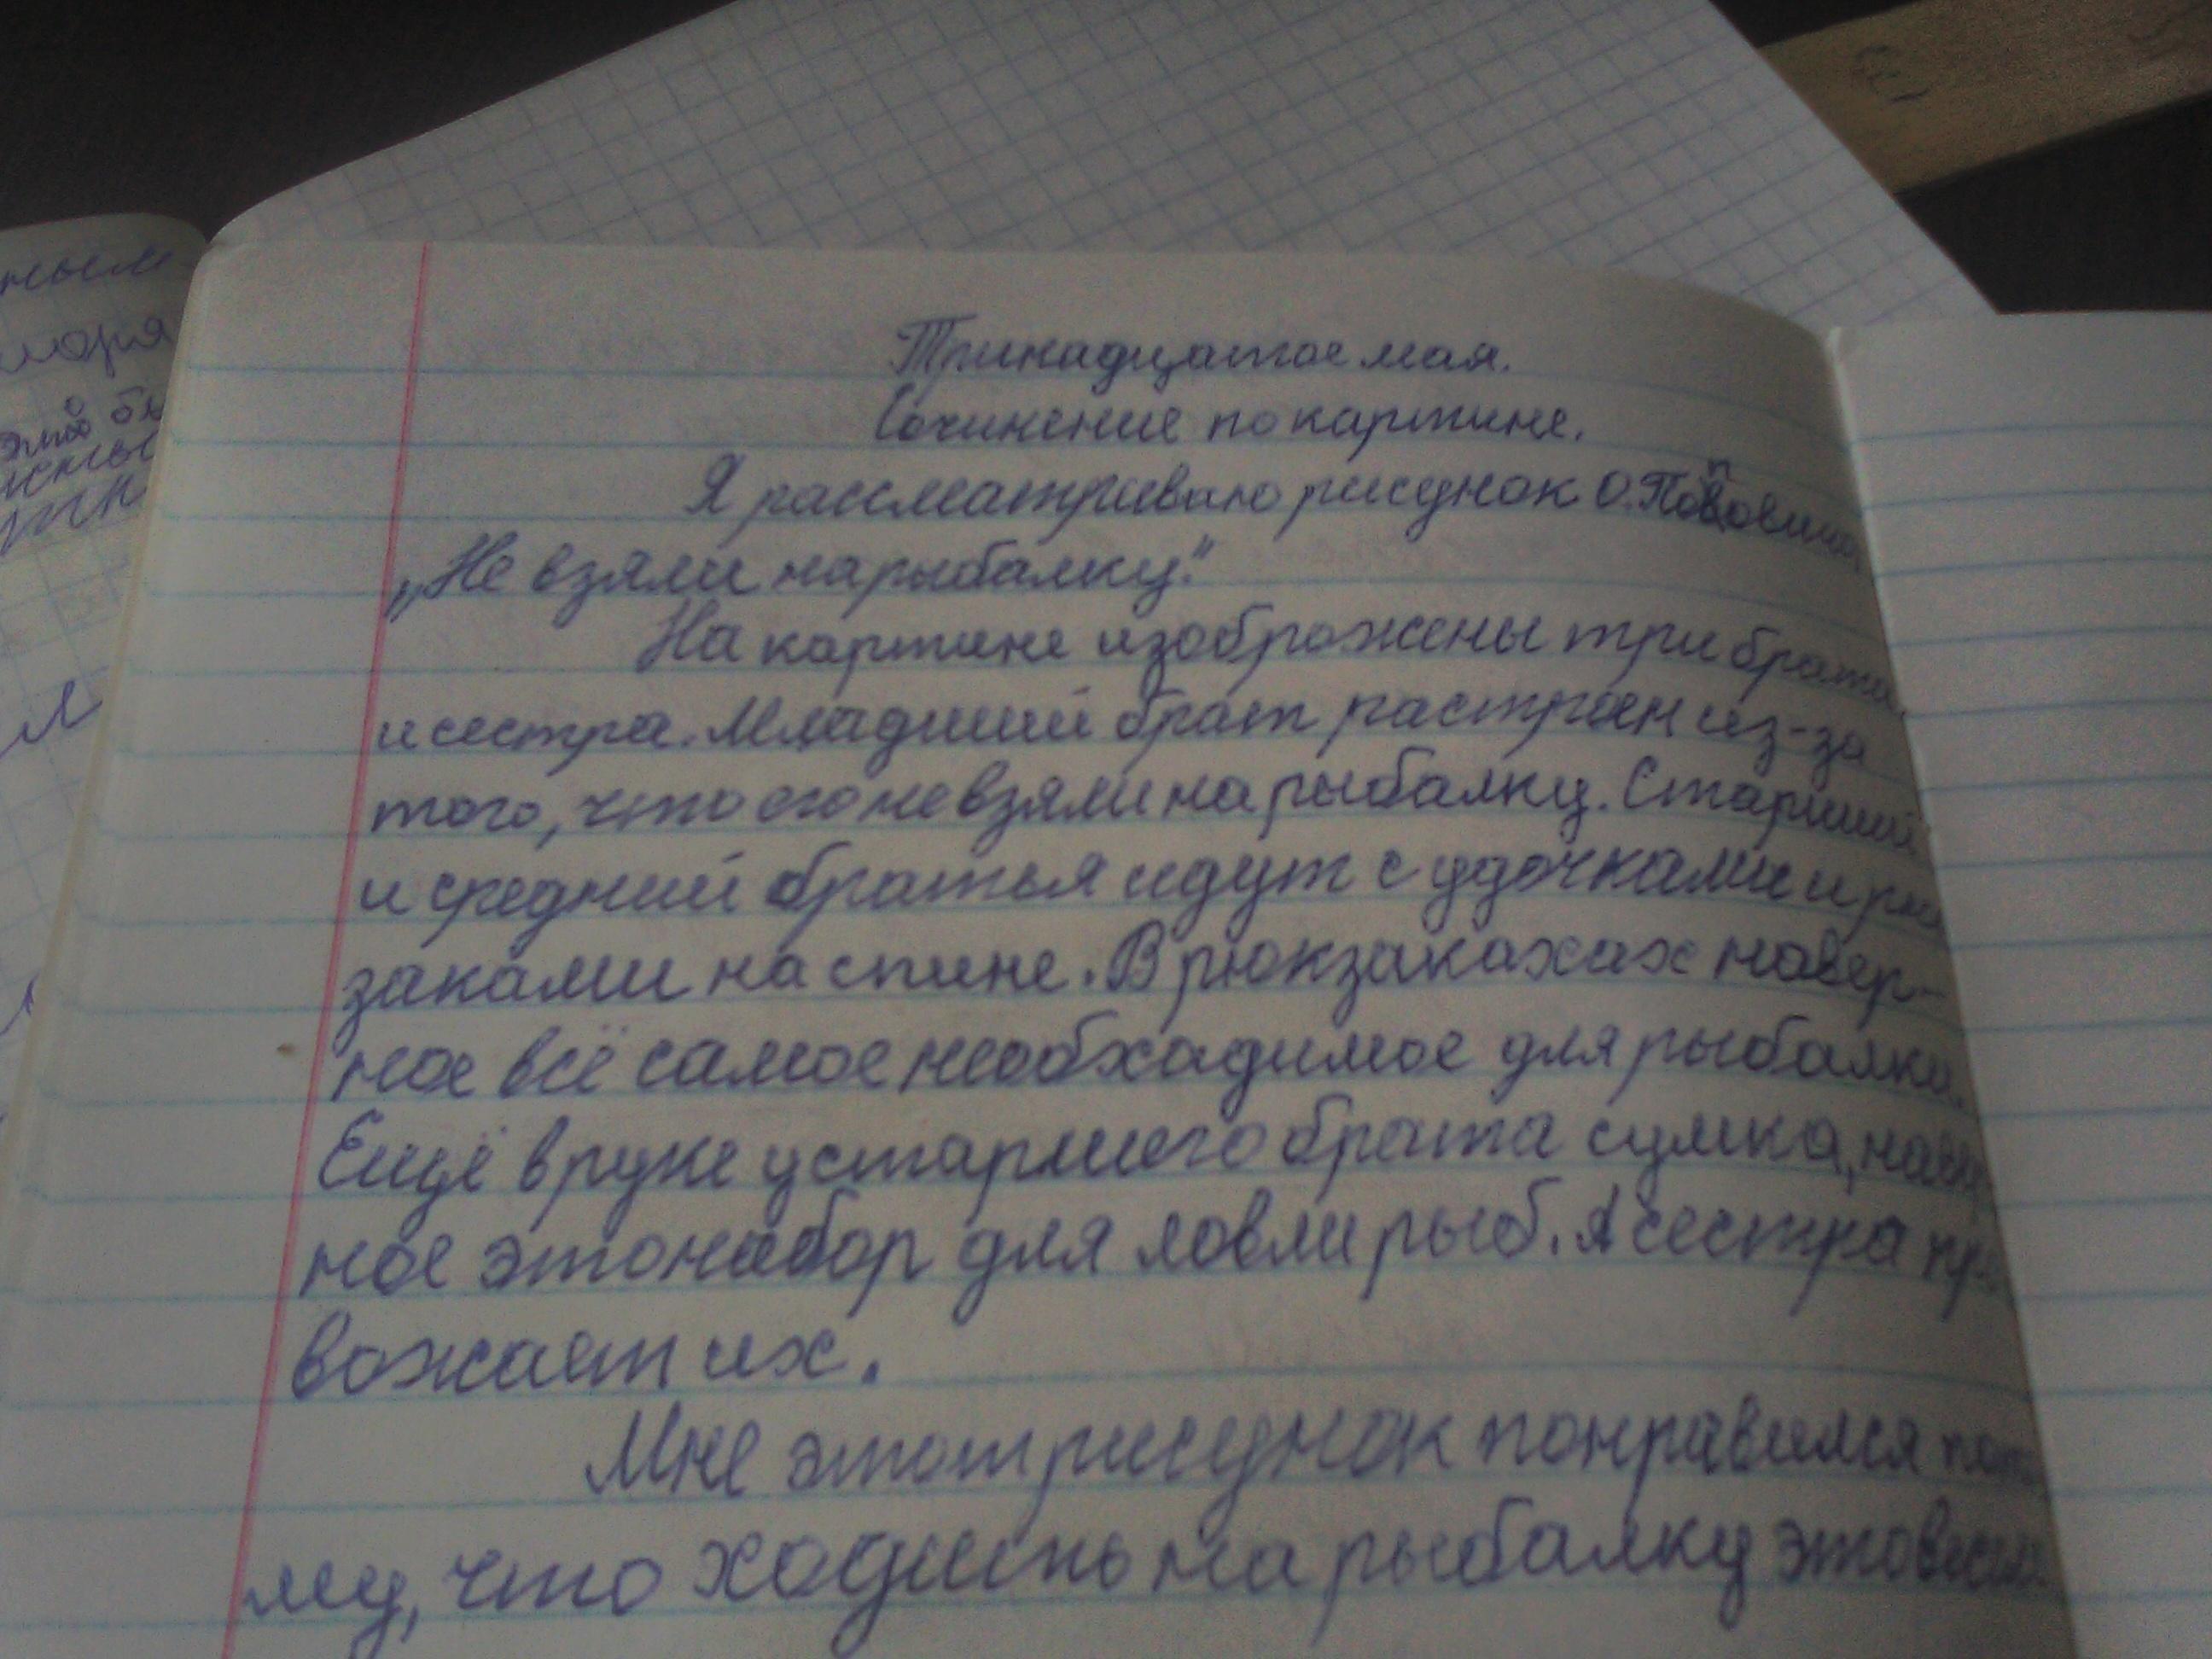 Тринадцатое мая.
Сочинение по картине.
Я рассматриваю рисунок О. Поповича
„Не взяли на рыбалку."
На картине изображены три брата
и сестра. Младший брат растроен из-за
того, что его не взяли на рыбалку. Старший
и средний братья идут с удочками и рюк
заками на спине. В рюкзакахах навер-
ное всё самое необхадимое для рыбалки.
Ещё в руке у старшего брата сумка, навер
ное это набор для ловли рыб. А сестра пр
вожает их.
Мне этот рисунок понравился пот
му, что ходить на рыбалку это
ным
моря